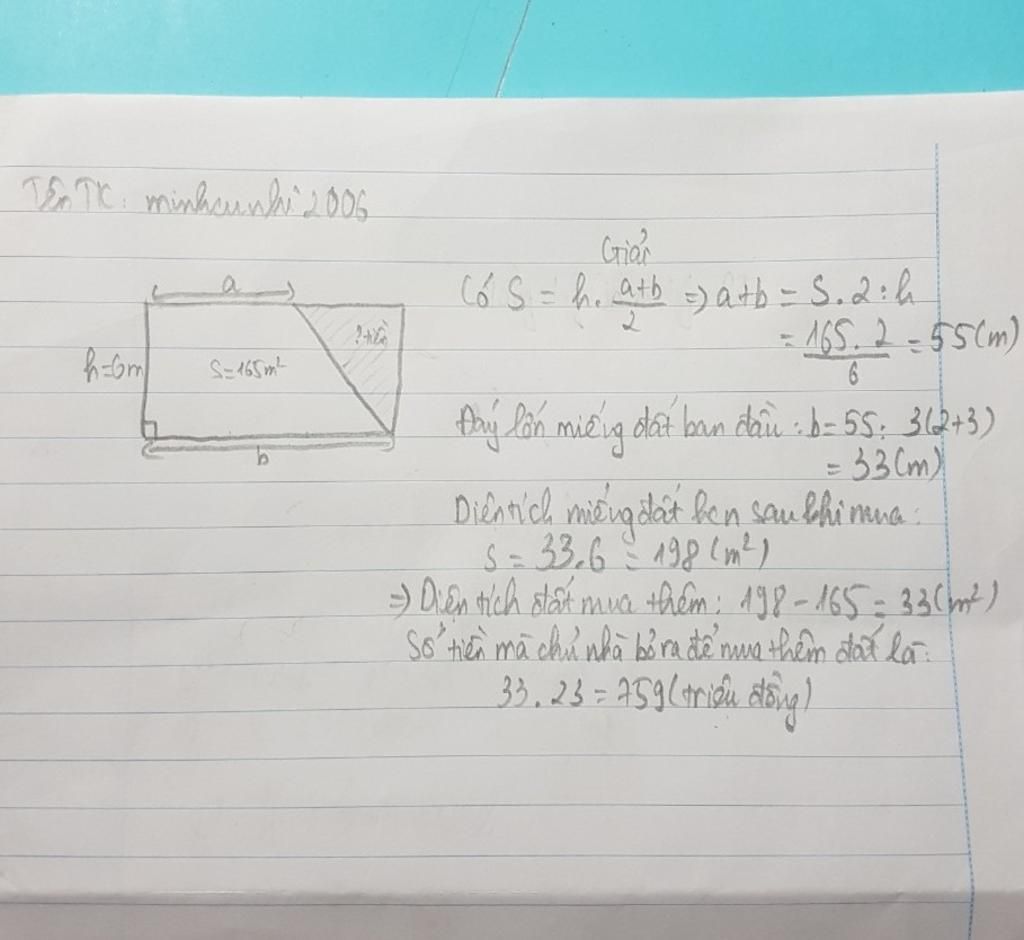 Tên TK: minhcunhi2006
Giải
a
h=6m
S=165m²
? tiền
b
Có S = h. a+b/2 => a+b = S.2:h
= 165.2/6 = 55(m)
Đáy lớn miếng đất ban đầu: b=55: 3(2+3)
= 33(m)
Diện tích miếng đất hcn sau khi mua:
S = 33.6 = 198(m²)
=> Diện tích đất mua thêm: 198-165=33(m²)
Số tiền mà chủ nhà bỏ ra để mua thêm đất là:
33.23=759(triệu đồng)